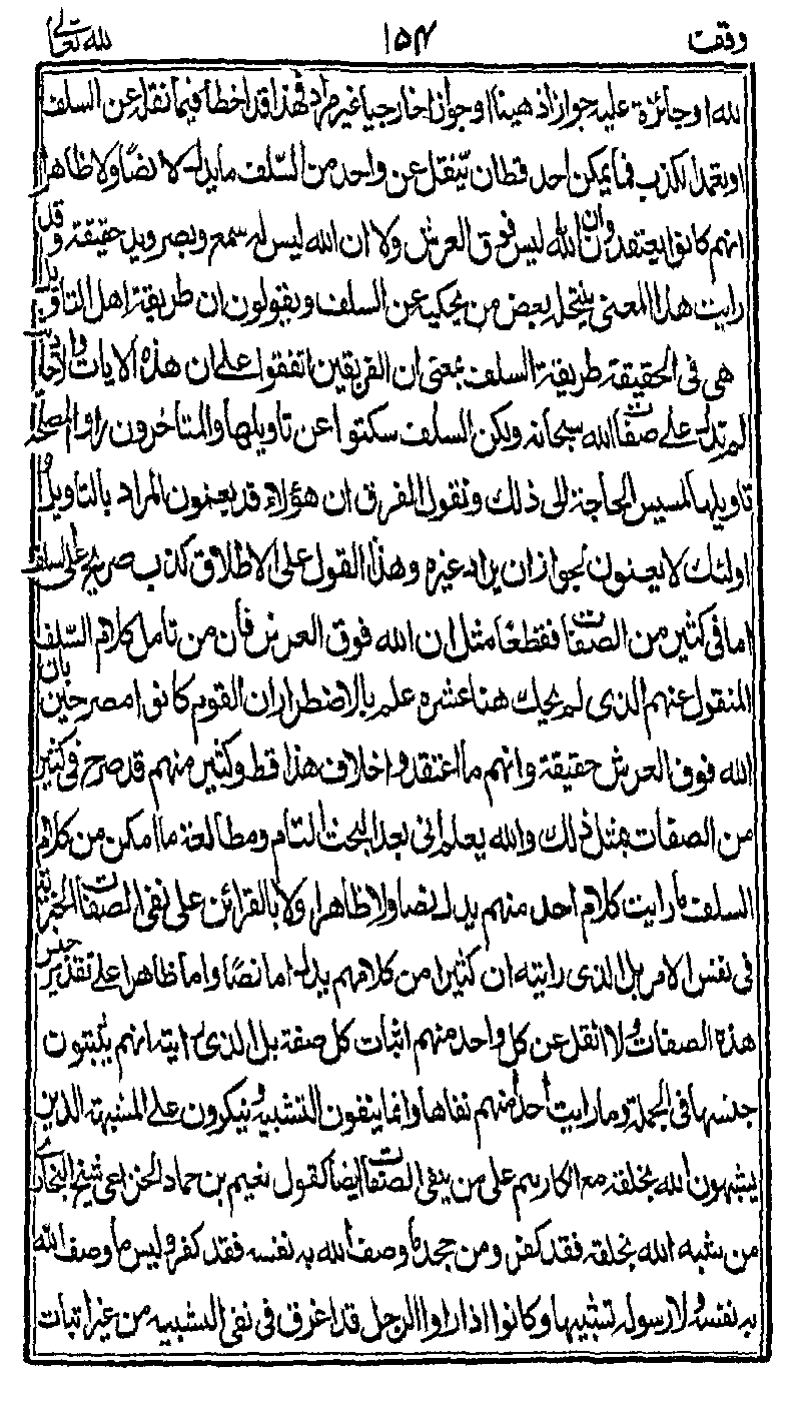 وقف ١٥٣ لله تعالى
لله او جائزة عليه جوازا ذهنيا او جوازا خارجيا غير مراد فهذا قد اخطأ فيما نقل عن السلف
او تعمد الكذب فما يمكن احد قط ان ينقل عن واحد من السلف ما يدل لا نصا ولا ظاهرا
انهم كانوا يعتقدون ان الله ليس فوق العرش ولا ان الله ليس له سمع وبصر ويد حقيقة وقد
رايت هذا المعنى ينتحله بعض من يحكيه عن السلف ويقولون ان طريقة اهل التاويل
هى فى الحقيقة طريقة السلف بمعنى ان الفريقين اتفقوا على ان هذه الايات والاحاديث
لم تدل على صفات الله سبحانه ولكن السلف سكتوا عن تاويلها والمتاخرون راوا المصلحة
تاويلها لمسيس الحاجة الى ذلك ونقول الفرق ان هؤلاء قد يعنون المراد بالتاويل و
اولئك لا يعنون لجواز ان يراد غيره وهذا القول على الاطلاق كذب صريح على السلف
اما فى كثير من الصفات فقطعا مثل ان الله فوق العرش فأن من تامل كلام السلف
المنقول عنهم الذى لم يحك هنا عشره علم بالاضطرار ان القوم كانوا مصرحين بان
الله فوق العرش حقيقة وانهم ما اعتقدوا خلاف هذا قط وكثير منهم قد صرح فى كثير
من الصفات بمثل ذلك والله يعلم انى بعد البحث التام ومطالعة ما امكن من كلام
السلف ما رايت كلام احد منهم يدل نصا ولا ظاهرا ولا بالقرائن على نفى الصفات الخبرية
فى نفس الامر بل الذى رايته ان كثيرا من كلامهم يدل اما نصا واما ظاهرا على تقدير جنس
هذه الصفات ولا انقل عن كل واحد منهم اثبات كل صفة بل الذى رايته انهم يثبتون
جنسها فى الجملة وما رايت أحدا منهم نفاها وانما ينفون التشبيه و ينكرون على المشبهة الذين
يشبهون الله بخلقه مع انكارهم على من ينفى الصفات ايضا كقول نعيم بن حماد الخزاعى شيخ البخارى
من شبه الله بخلقه فقد كفر ومن جحد ما وصف الله به نفسه فقد كفر وليس ما وصف الله
به نفسه و لا رسوله تشبيها وكانوا اذا راوا الرجل قد اغرق فى نفى التشبيه من غير اثبات